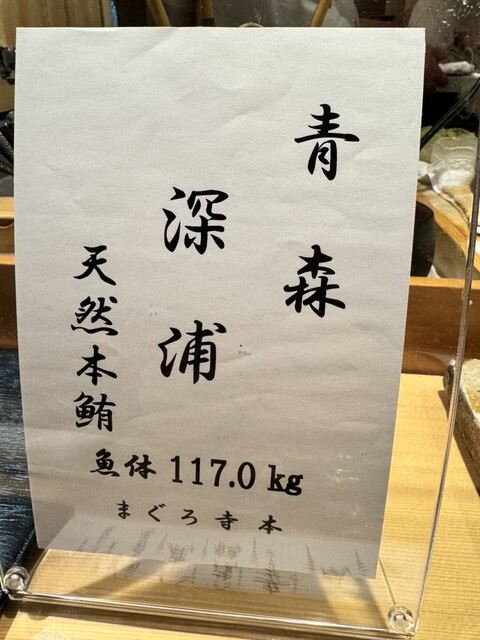 青森
深浦
天然本鮪
魚体 117.0 kg
まぐろ寺本